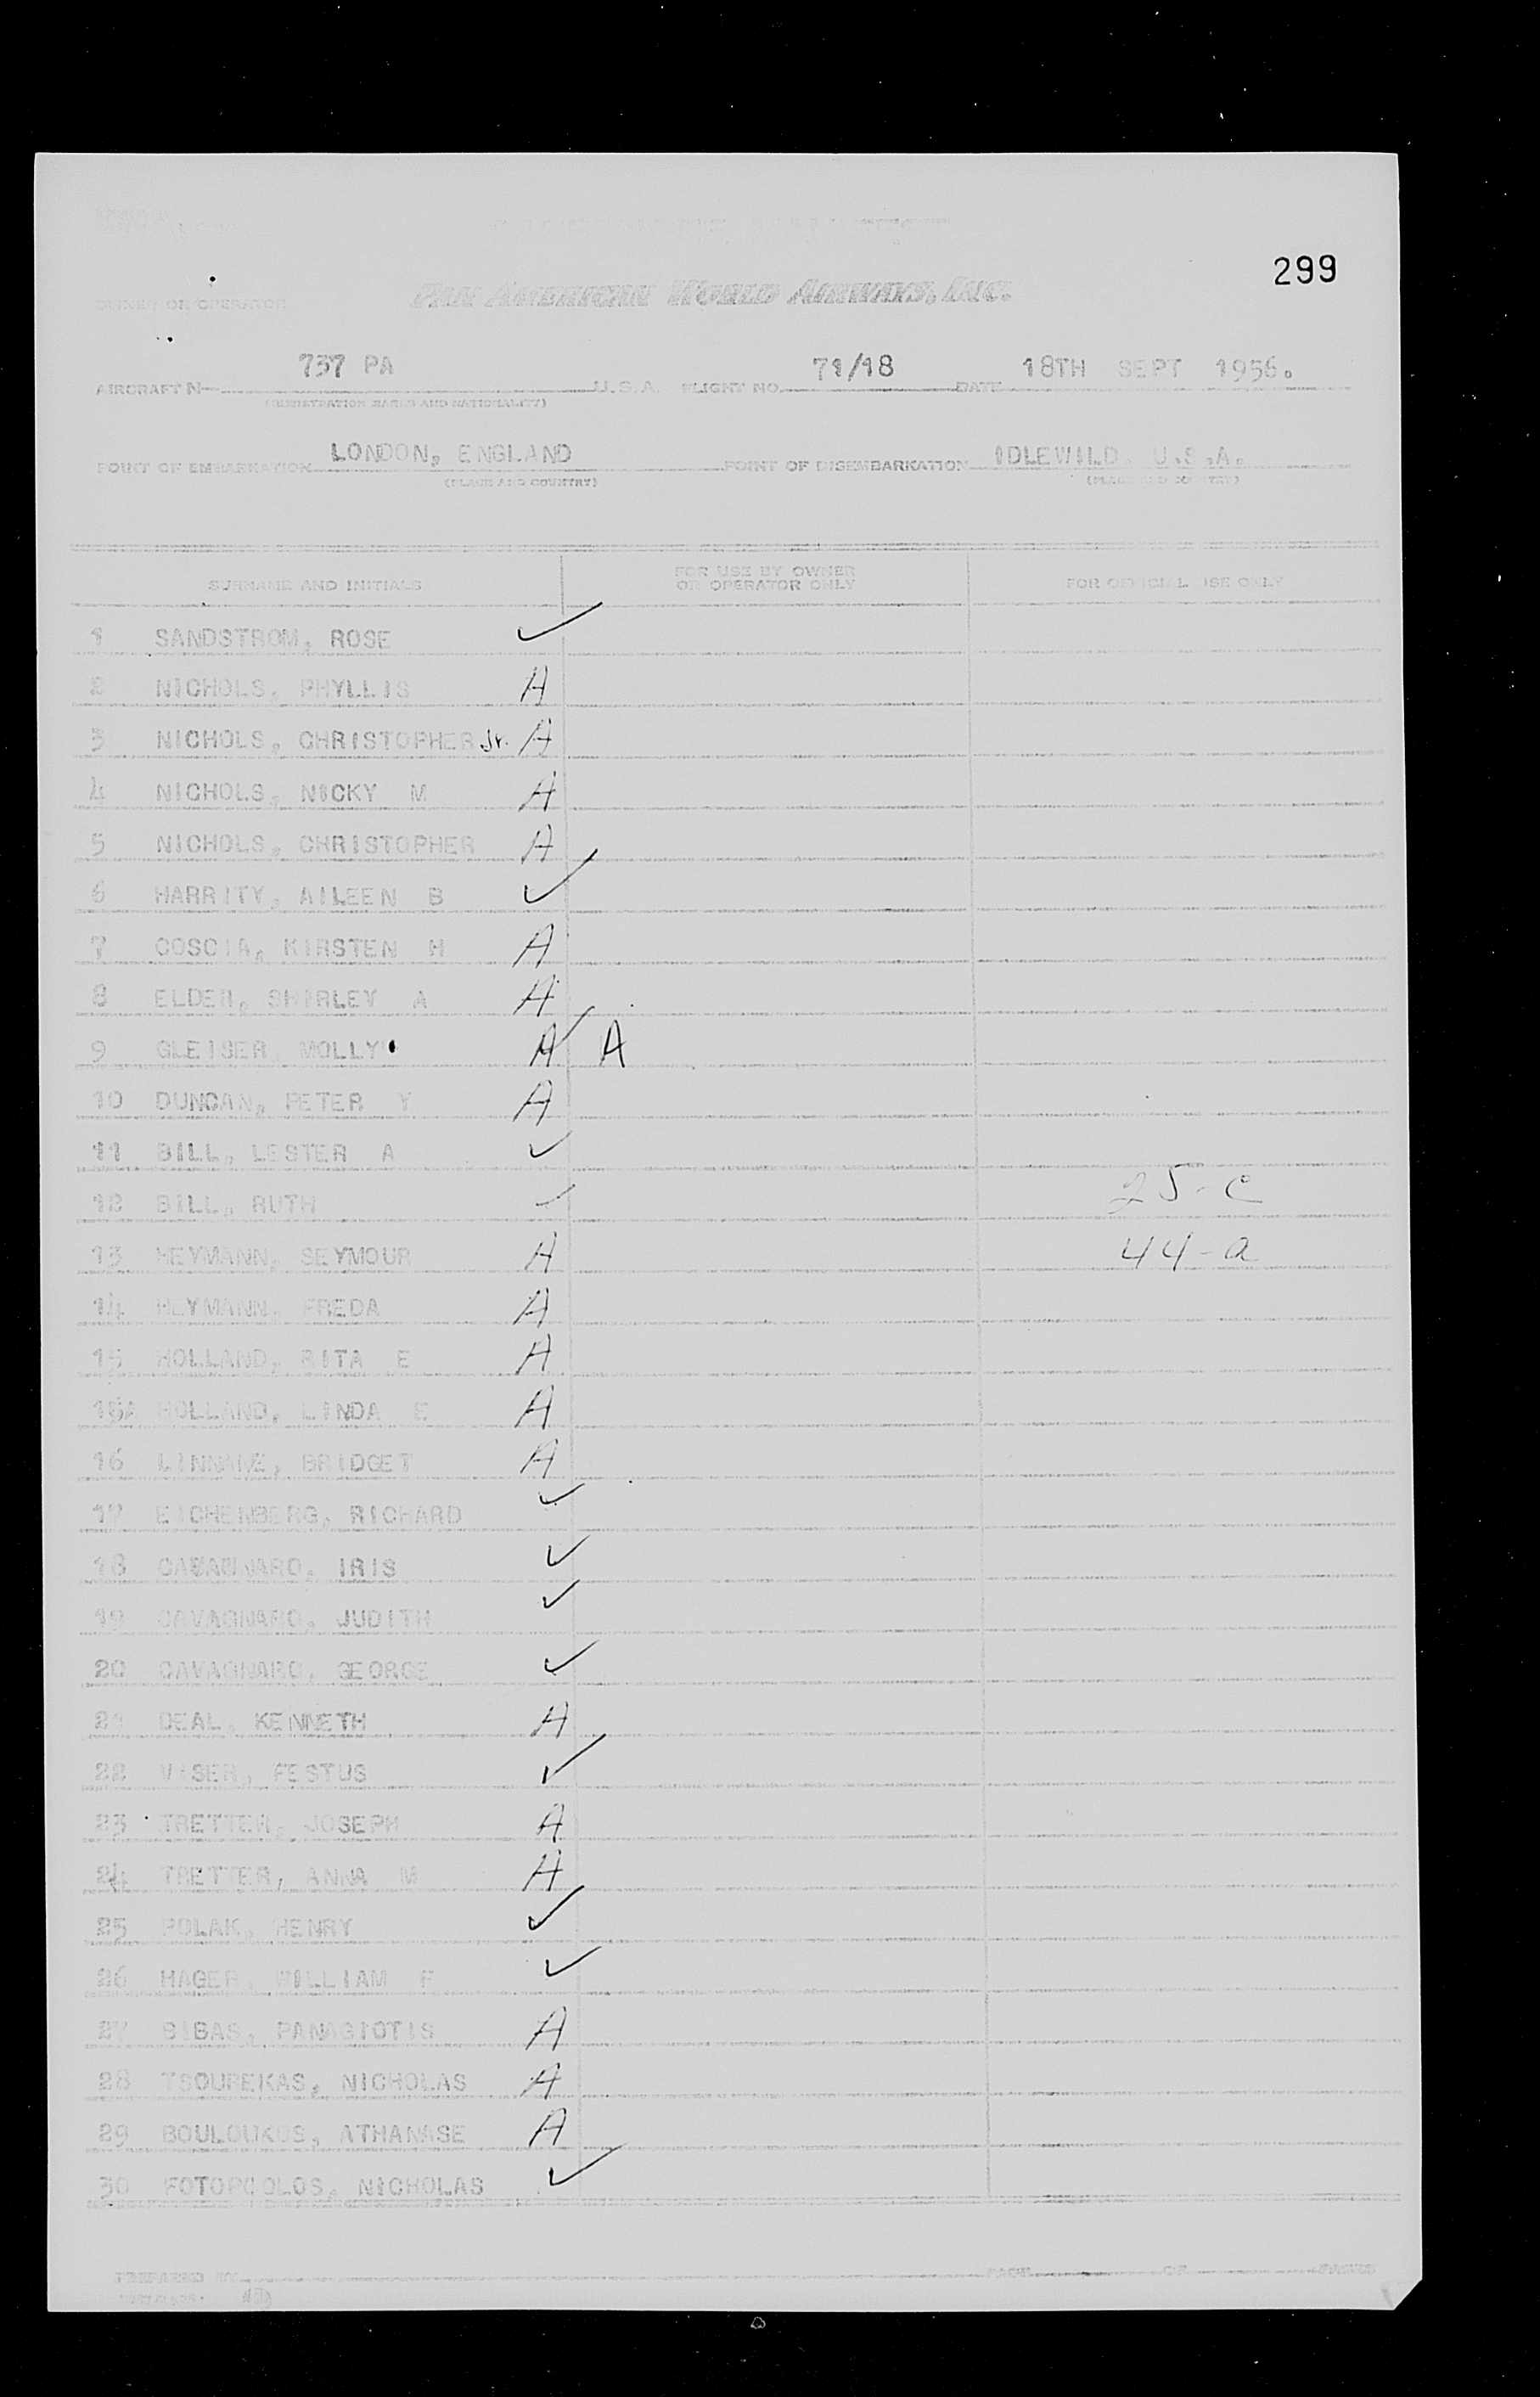 299
OWNER OR OPERATOR PAN AMERICAN WORLD AIRWAYS, INC.
AIRCRAFT N— 737 PA U.S.A. FLIGHT NO. 71/18 DATE 18TH SEPT 1956.
(REGISTRATION MARKS AND NATIONALITY)
POINT OF EMBARKATION LONDON, ENGLAND POINT OF DISEMBARKATION IDLEWILD, U.S.A.
(PLACE AND COUNTRY) (PLACE AND COUNTRY)
SURNAME AND INITIALS FOR USE BY OWNER OR OPERATOR ONLY FOR OFFICIAL USE ONLY
1 SANDSTROM, ROSE ✓
2 NICHOLS, PHYLLIS A
3 NICHOLS, CHRISTOPHER Jr. A
4 NICHOLS, NICKY M A
5 NICHOLS, CHRISTOPHER A
6 HARRITY, AILEEN B ✓
7 COSCIA, KIRSTEN H A
8 ELDER, SHIRLEY A A
9 GLEISER, MOLLY A A
10 DUNCAN, PETER Y A
11 BILL, LESTER A ✓
12 BILL, RUTH ✓ 25-c
13 HEYMANN, SEYMOUR A 44-a
14 HEYMANN, FREDA A
15 HOLLAND, RITA E A
15A HOLLAND, LINDA E A
16 LINNANE, BRIDGET A
17 EICHENBERG, RICHARD ✓
18 CAVAGNARO, IRIS ✓
19 CAVAGNARO, JUDITH ✓
20 CAVAGNARO, GEORGE ✓
21 DEAL, KENNETH A
22 VISER, FESTUS ✓
23 TRETTER, JOSEPH A
24 TRETTER, ANNA M A
25 POLAK, HENRY ✓
26 HAGER, WILLIAM F ✓
27 BIBAS, PANAGIOTIS A
28 TSOUREKAS, NICHOLAS A
29 BOULOUKOS, ATHANASE A
30 FOTOPOOLOS, NICHOLAS ✓
PREPARED BY PAGE OF PAGES